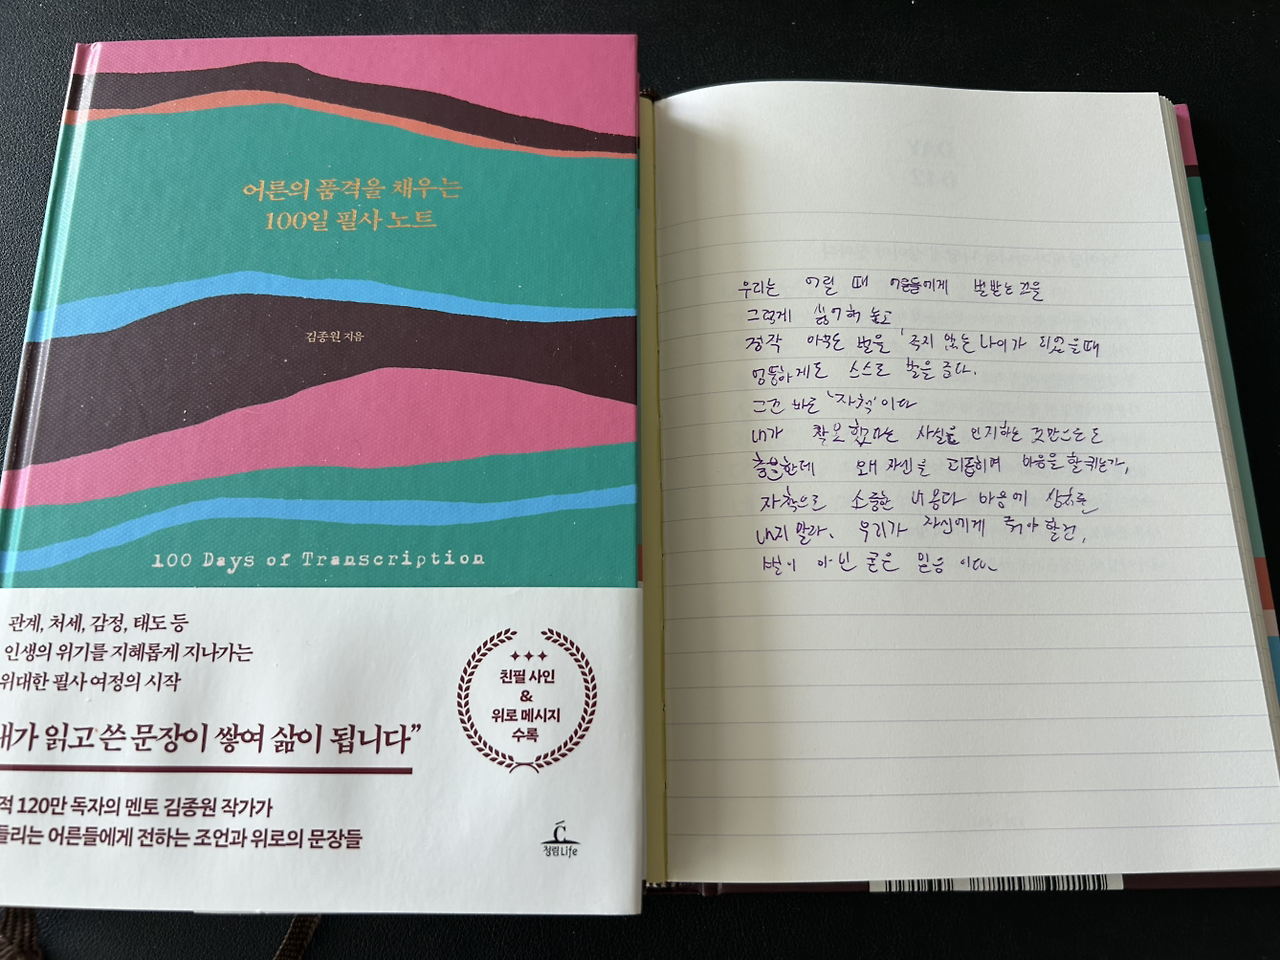 어른의 품격을 채우는
100일 필사 노트
김종원 지음
100 Days of Transcription
관계, 처세, 감정, 태도 등
인생의 위기를 지혜롭게 지나가는
위대한 필사 여정의 시작
내가 읽고 쓴 문장이 쌓여 삶이 됩니다”
적 120만 독자의 멘토 김종원 작가가
들리는 어른들에게 전하는 조언과 위로의 문장들
친필 사인
&
위로 메시지
수록
청림Life
DAY
우리는 어릴 때 어른들에게 벌받는 것을
그렇게 싫어해 놓고
정작 아무도 벌을 주지 않는 나이가 되었을때
엉뚱하게도 스스로 벌을 준다.
그건 바로 '자책'이다
내가 잘못했다는 사실을 인지하는 것만으로도
충분한데 왜 자신을 괴롭히며 마음을 할퀴는가,
자책으로 소중한 내 몸과 마음에 상처를
내지 말라. 우리가 자신에게 줘야 할건,
벌이 아닌 굳은 믿음 이다.